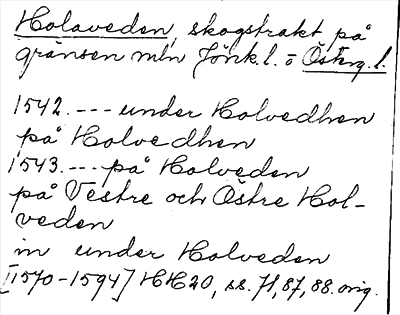 Holaveden, skogstrakt på
gränsen mln Jönk.l. o Östrg.l.
1542. --- under Holvedhen
på Holvedhen
1543. --- på Holveden
på Vestre och Östre Hol-
veden
in under Holveden
[1570-1594] HH20, ss. 71, 87, 88. orig.